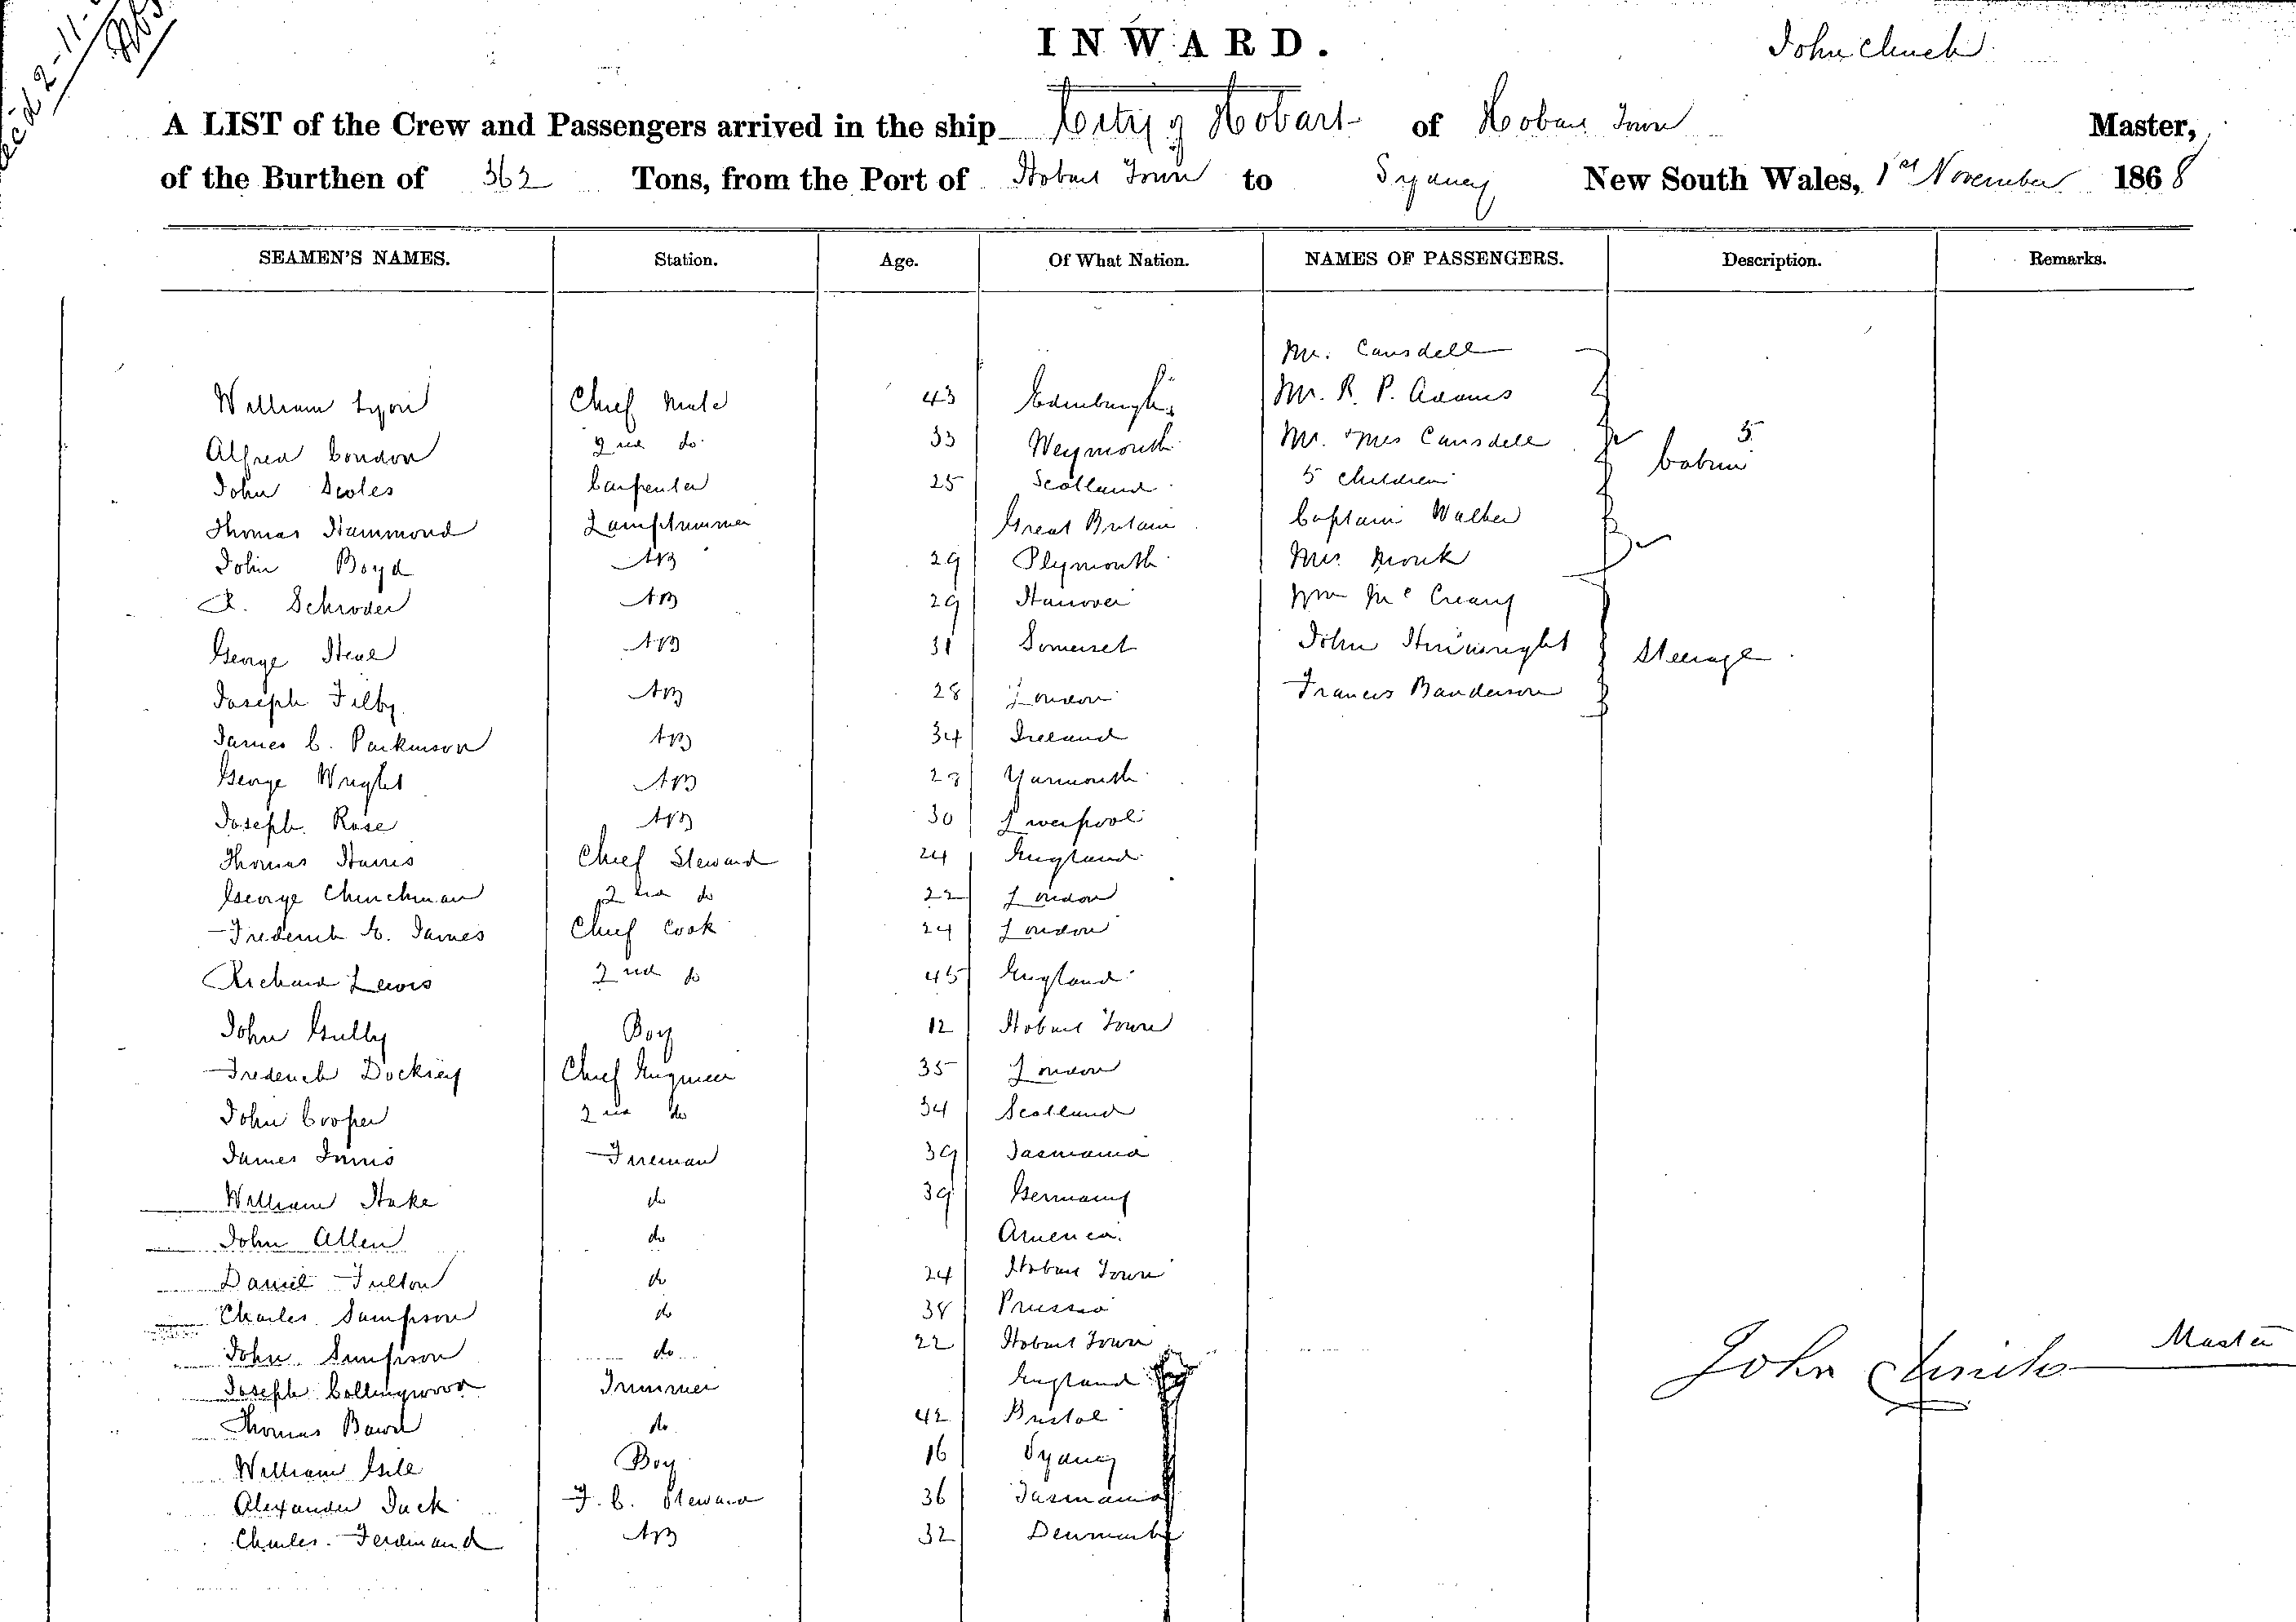 INWARD.
John Clinch
A LIST of the Crew and Passengers arrived in the ship City of Hobart of Hobart Town Master,
of the Burthen of 362 Tons, from the Port of Hobart Town to Sydney New South Wales, 1st November 1868
SEAMEN'S NAMES. Station. Age. Of What Nation. NAMES OF PASSENGERS. Description. Remarks.
Mr. Cansdell
William Lyon Chief Mate 43 Edinburgh Mr. R. P. Adams
Alfred Condon 2nd do 33 Weymouth Mr. & Mrs Cansdell 5
John Scoles Carpenter 25 Scotland 5 Children Cabin
Thomas Hammond Lamptrimmer Great Britain Captain Walker
John Boyd AB 29 Plymouth Mrs. Monk
R. Schroder AB 29 Hanover Wm McCreary
George AB 31 Somerset John Steerage
Joseph Filby AB 28 London Francis Banderson
James C. Parkinson AB 34 Ireland
George Wright AB 28 Yarmouth
Joseph Rose AB 30 Liverpool
Thomas Harris Chief Steward 24 England
George Churchman 2nd do 22 London
Frederick E. James Chief Cook 24 London
Richard Lewis 2nd do 45 England
John Gully Boy 12 Hobart Town
Frederick Dockray Chief Engineer 35 London
John Cooper 2nd do 34 Scotland
James Innis Fireman 39 Tasmania
William Hake do 39 Germany
John Allen do America
Daniel Fulton do 24 Hobart Town
Charles Sampson do 38 Prussia
John Simpson do 22 Hobart Town
Joseph Collingwood Trimmer England
John Clinch Master
Thomas Bawd do 42 Bristol
William Gill Boy 16 Sydney
Alexander Duck F. C. Steward 36 Tasmania
Charles Ferdinand AB 32 Denmark